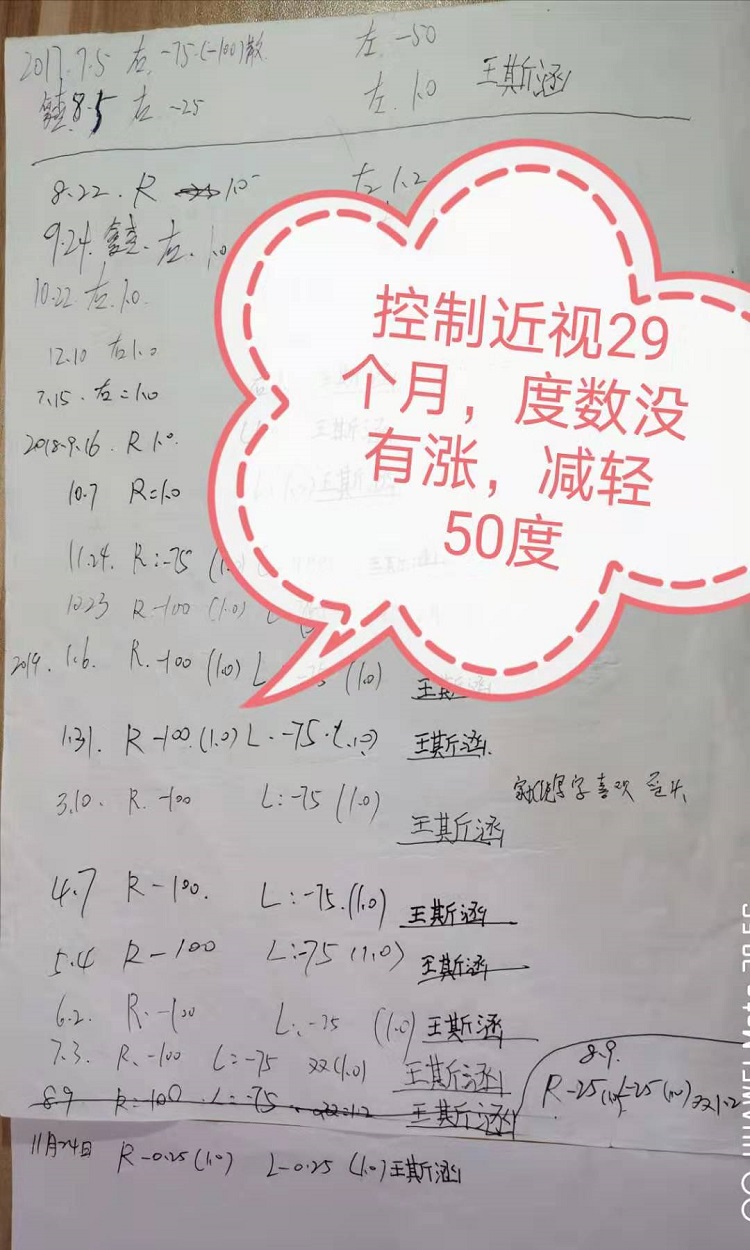 2017.7.5 右 -75.(-100)散 左 -50
8.5 右 -25 左 1.0 王斯涵
8.22. R 1.0⁻ 左 1.2
9.24. 右. 1.0
10.22. 右. 1.0.
12.10 右1.0
7.15. 右=1.0
2018.9.16. R 1.0.
10.7 R=1.0
11.24. R:-75 (1.0)
控制近视29
个月，度数没
有涨，减轻
50度
R-100 (1.0)
2019. 1.6. R. -100 (1.0) L -75 (1.0) 王斯涵
1.31. R-100.(1.0) L.-75.(1.0) 王斯涵
3.10. R. -100 L:-75 (1.0) 王斯涵
写字喜欢
4.7 R-100. L:-75.(1.0) 王斯涵
5.4 R-100 L:-75 (1.0) 王斯涵
6.2. R.-100 L.-75 (1.0) 王斯涵
7.3. R.-100 L=-75 双(1.0) 王斯涵
8.9 R=100 L:-75. 双=1.2 王斯涵
8.9.
R-25(1.0) L-25(1.0)双1.2
11月24日 R-0.25(1.0) L-0.25 (1.0)王斯涵
HUAWEI Mate 20